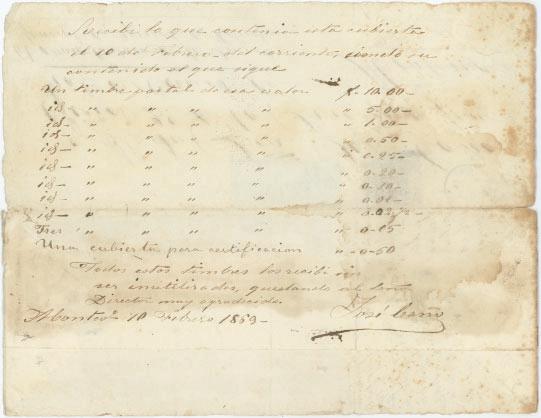 Recibí lo que contenia esta cubierta
el 10 de Febrero del corriente, siendo su
contenido el que sigue
Un timbre postal de ese valor $ 10.00-
id- " " " " " 5.00-
id- " " " " " 1.00-
id- " " " " " 0-50
id- " " " " " 0-25-
id- " " " " " 0-20-
id- " " " " " 0-10-
id- " " " " "
id- " " " " "
Tres " " " " " 0-
Una cubierta para certificacion " -0-50
Todos estos timbres los recibi
ser inutilizados, quedando al Señor
Director muy agradecido.
10 Febrero 18 José Cano